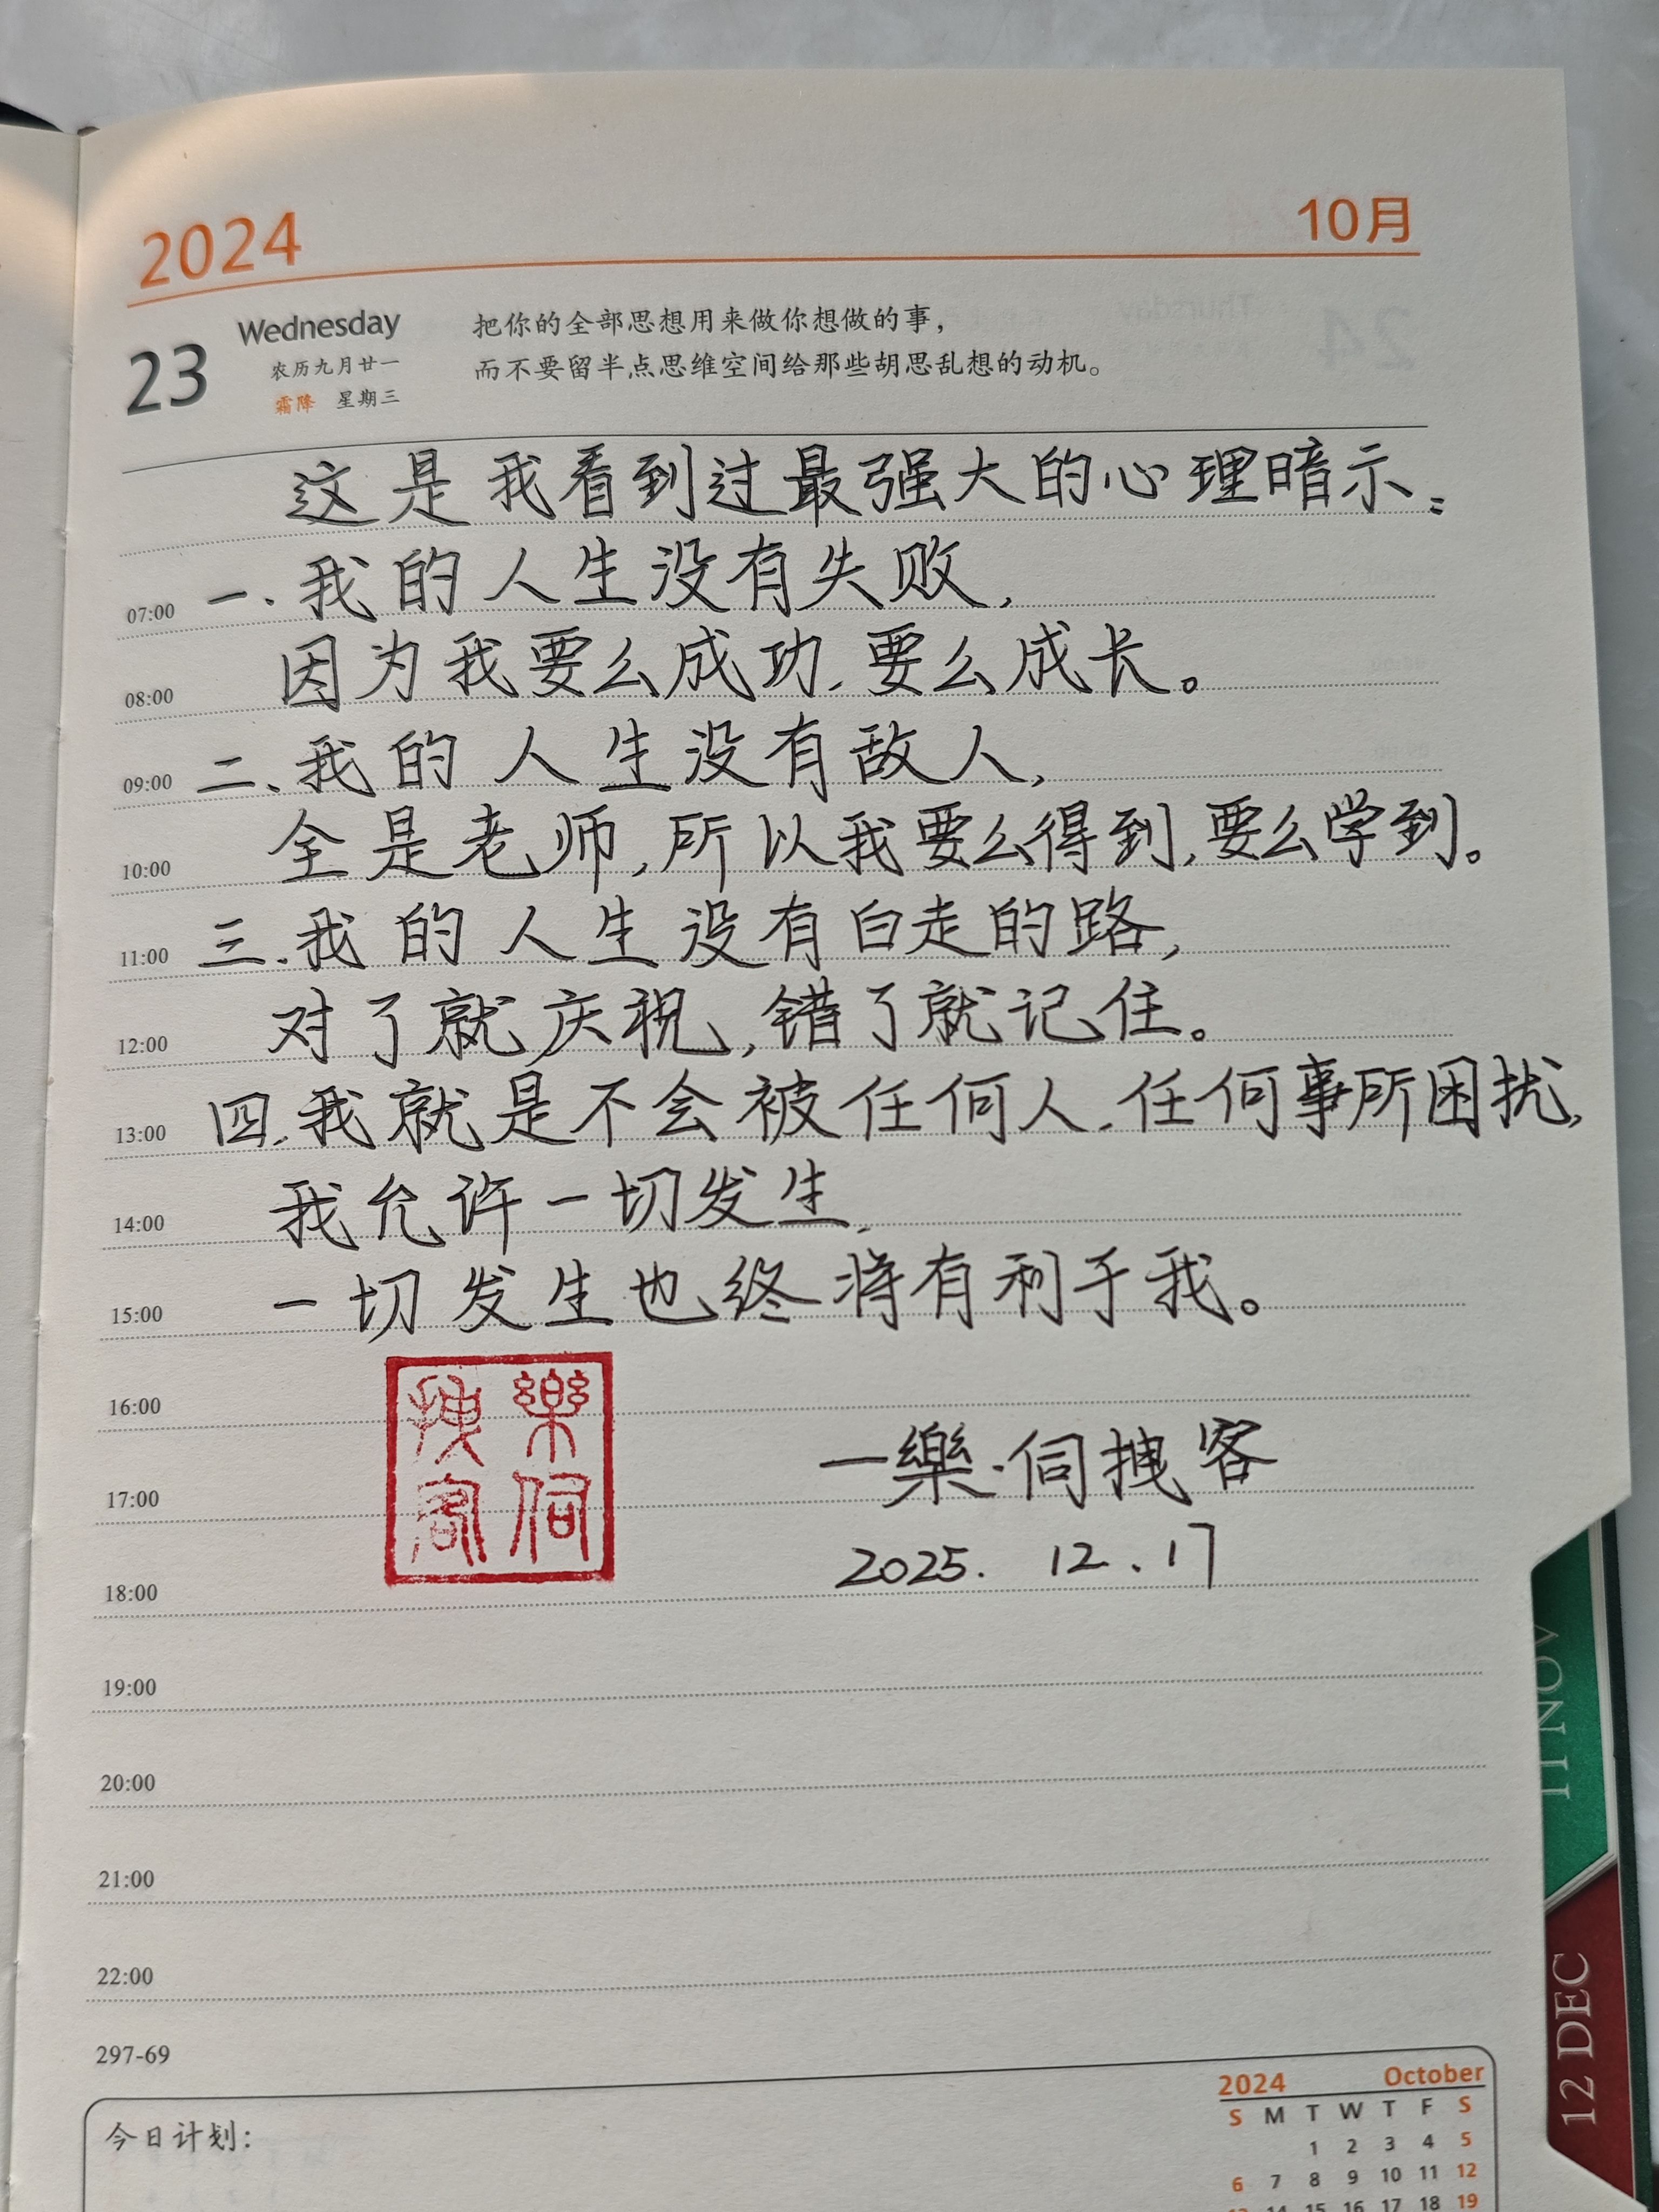 2024 10月
23 Wednesday
农历九月廿一
霜降 星期三
把你的全部思想用来做你想做的事，
而不要留半点思维空间给那些胡思乱想的动机。
这是我看到过最强大的心理暗示：
07:00 一、我的人生没有失败，
08:00 因为我要么成功，要么成长。
09:00 二、我的人生没有敌人，
10:00 全是老师，所以我要么得到，要么学到。
11:00 三、我的人生没有白走的路，
12:00 对了就庆祝，错了就记住。
13:00 四、我就是不会被任何人、任何事所困扰，
14:00 我允许一切发生，
15:00 一切发生也终将有利于我。
16:00
樂伺
拽客
一樂·伺拽客
17:00
2025.12.17
18:00
19:00
20:00
21:00
22:00
297-69
今日计划：
2024 October
S M T W T F S
1 2 3 4 5
6 7 8 9 10 11 12
13 14 15 16 17 18 19
11 NOV
12 DEC